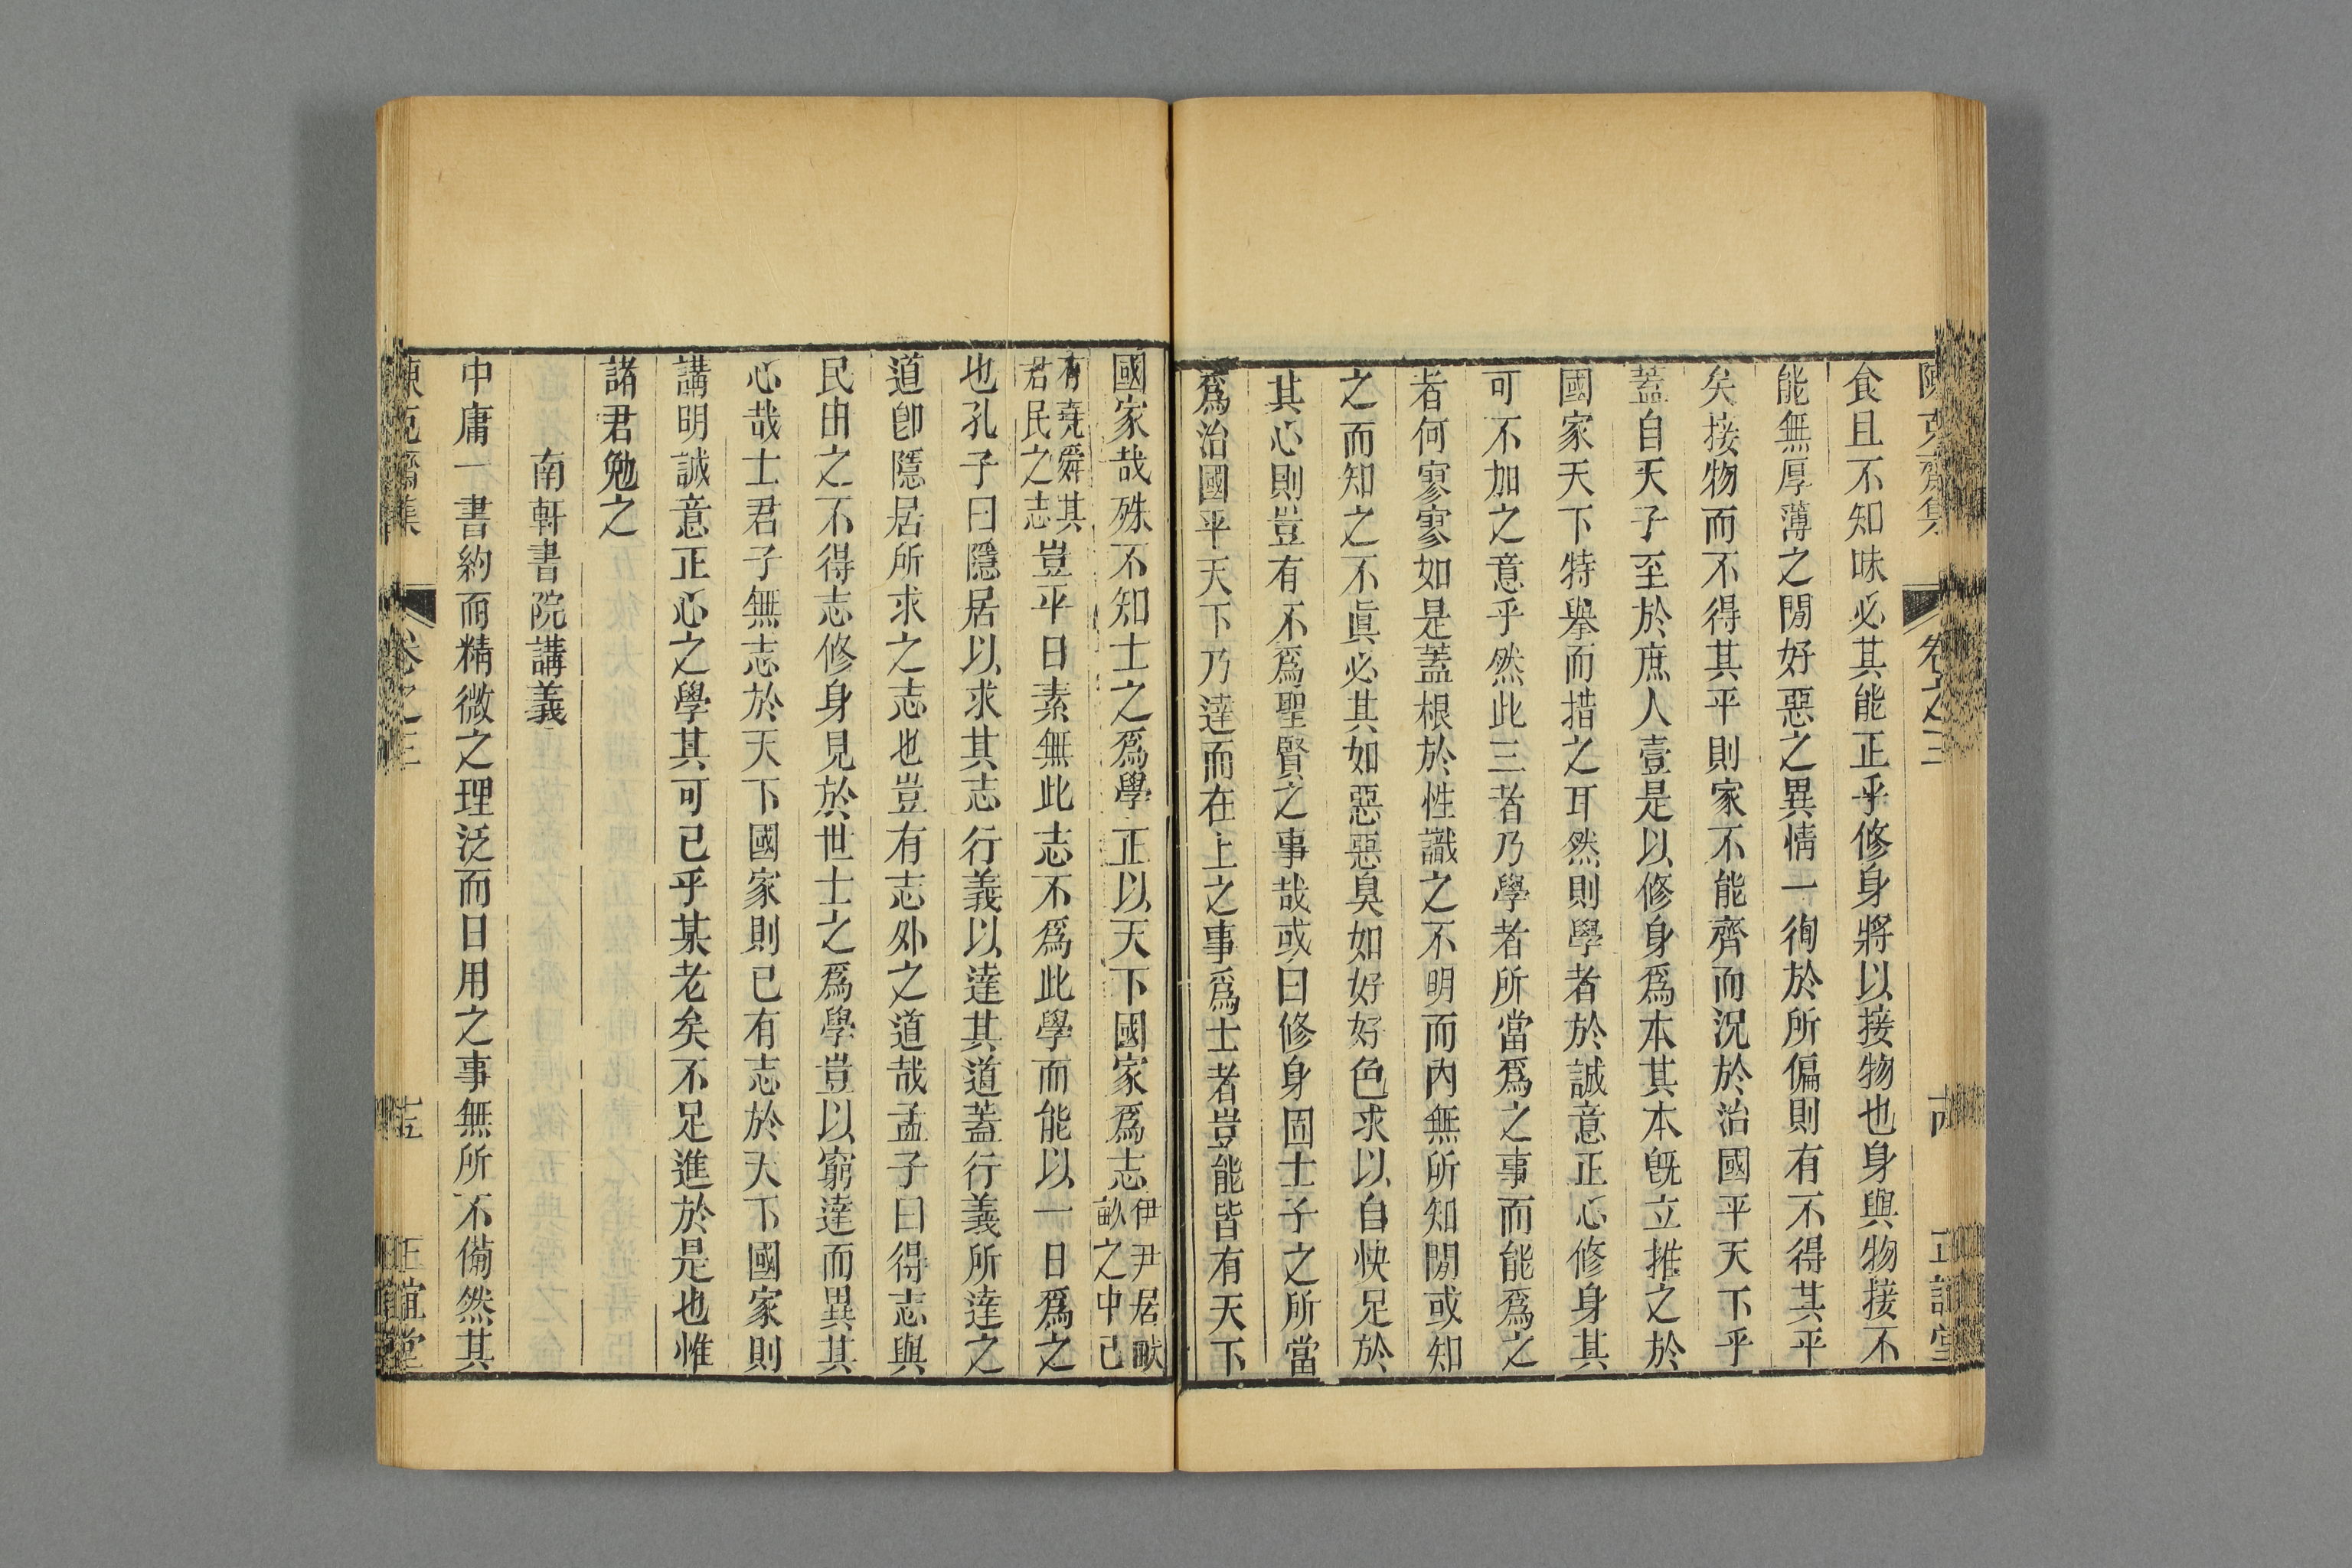 食且不知味必其能正乎修身將以接物也身與物接不
能無厚薄之閒好惡之異情一徇於所偏則有不得其平
矣接物而不得其平則家不能齊而況於治國平天下乎
蓋自天子至於庶人壹是以修身爲本其本旣立推之於
國家天下特舉而措之耳然則學者於誠意正心修身其
可不加之意乎然此三者乃學者所當爲之事而能爲之
者何寥寥如是蓋根於性識之不明而內無所知閒或知
之而知之不眞必其如惡惡臭如好好色求以自快足於
其心則豈有不爲聖賢之事哉或曰修身固士子之所當
爲治國平天下乃達而在上之事爲士者豈能皆有天下
國家哉殊不知士之爲學正以天下國家爲志伊尹居畎
畝之中已
有堯舜其
君民之志豈平日素無此志不爲此學而能以一日爲之
也孔子曰隱居以求其志行義以達其道蓋行義所達之
道卽隱居所求之志也豈有志外之道哉孟子曰得志與
民由之不得志修身見於世士之爲學豈以窮達而異其
心哉士君子無志於天下國家則已有志於天下國家則
講明誠意正心之學其可已乎某老矣不足進於是也惟
諸君勉之
南軒書院講義
中庸一書約而精微之理泛而日用之事無所不備然其
克齋集
卷之三
正誼堂